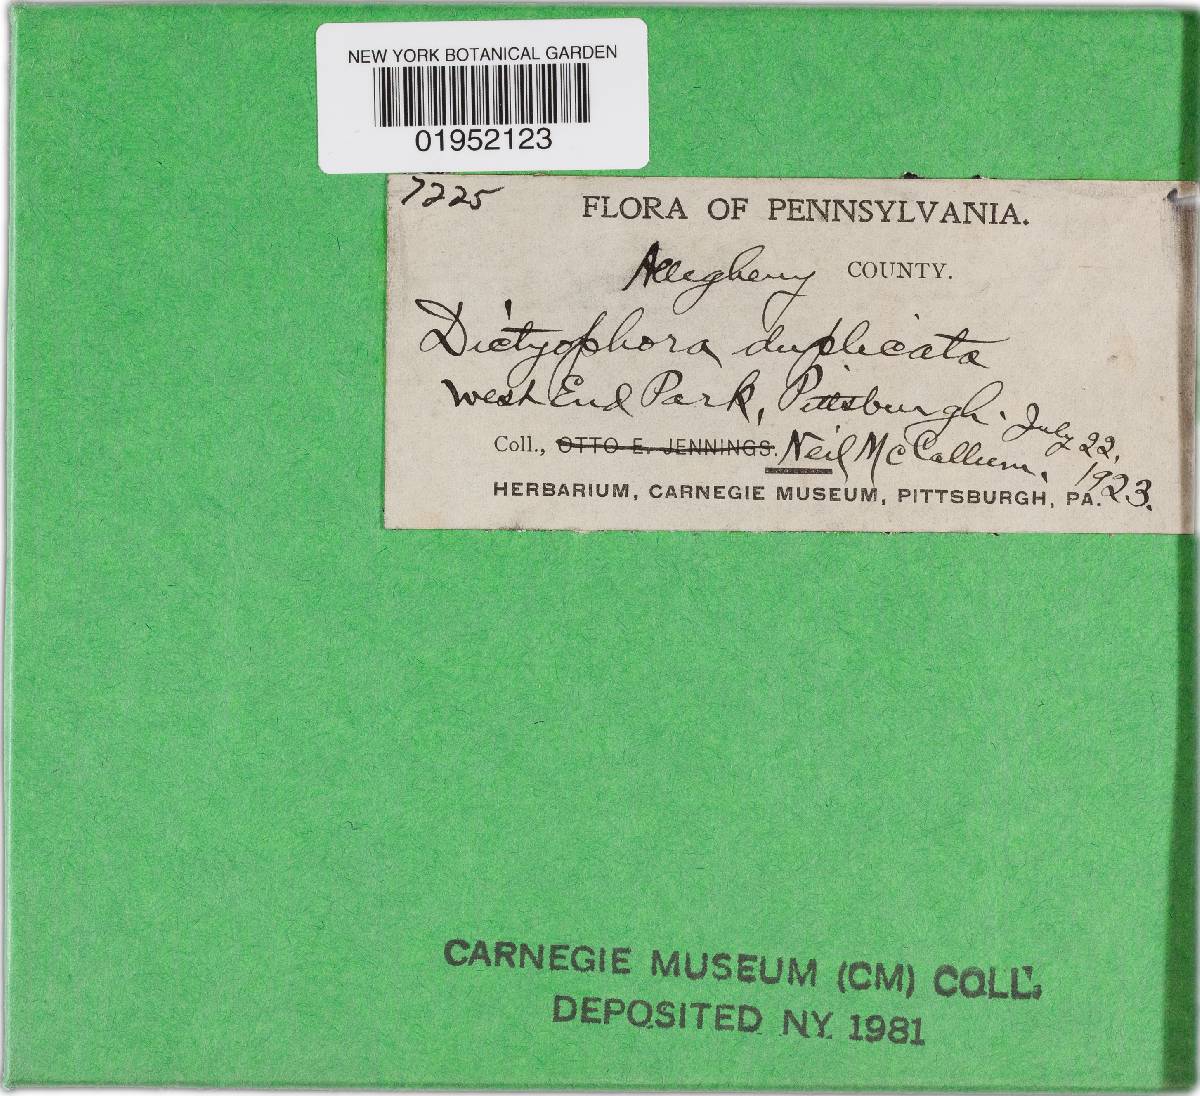 NEW YORK BOTANICAL GARDEN
01952123
7225
FLORA OF PENNSYLVANIA.
Allegheny COUNTY.
Dictyophora duplicata
West End Park, Pittsburgh. July 22, 1923.
Coll., OTTO E. JENNINGS. Neil McCallum.
HERBARIUM, CARNEGIE MUSEUM, PITTSBURGH, PA.
CARNEGIE MUSEUM (CM) COLL.
DEPOSITED NY 1981